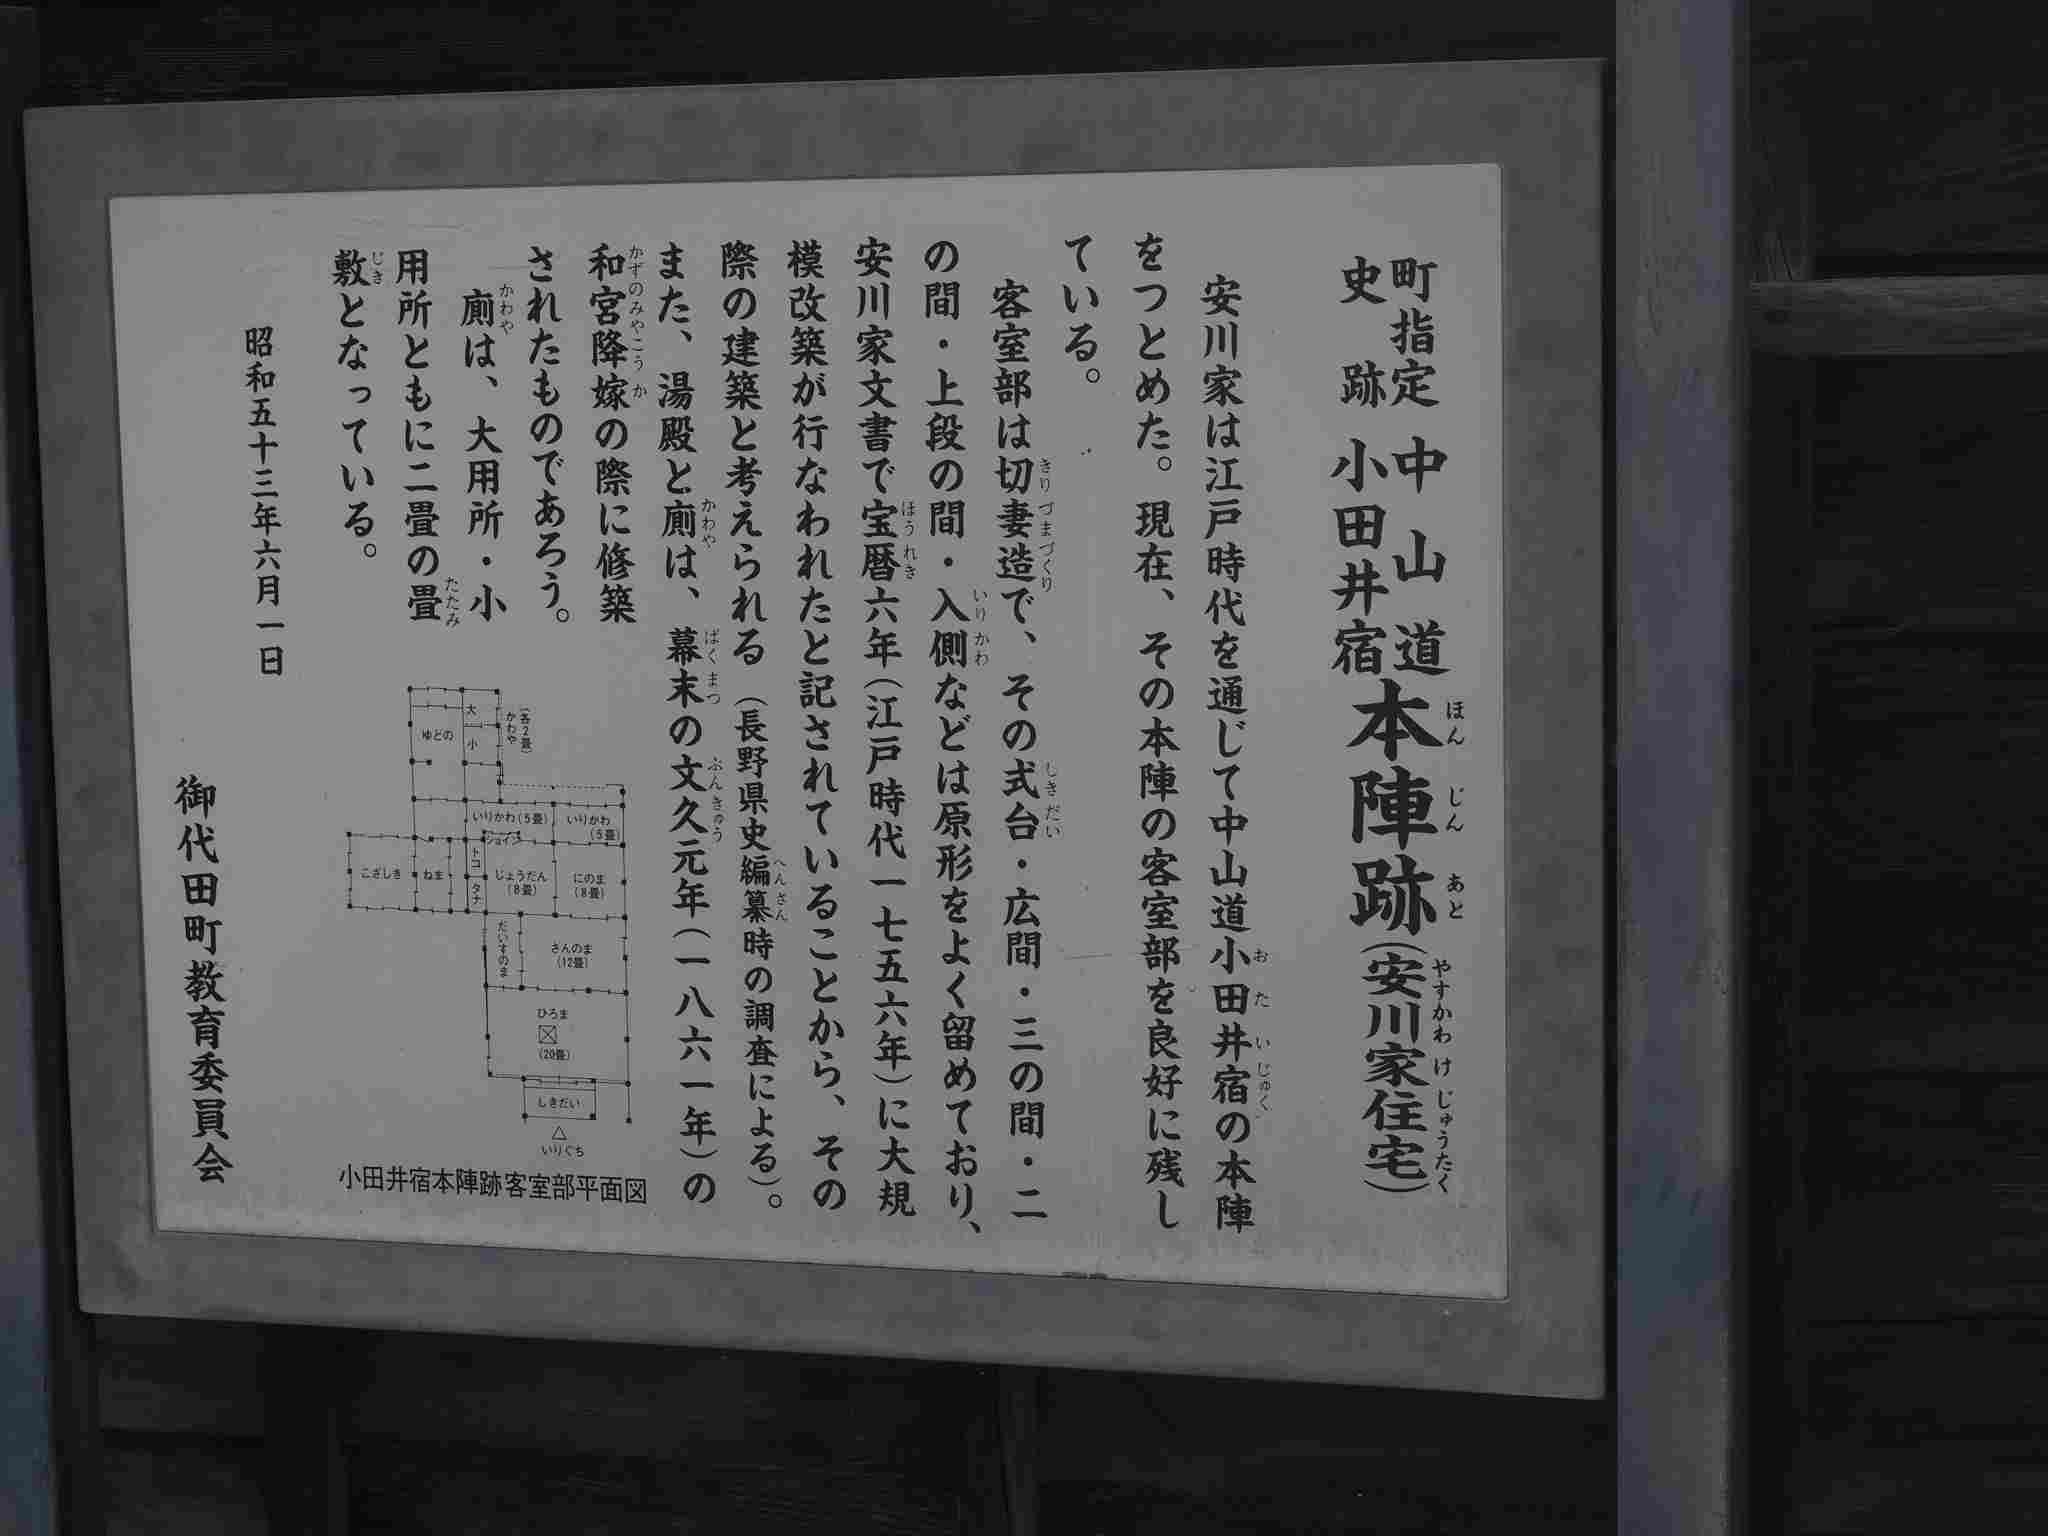 町指定
史跡
中山道
小田井宿
本陣跡（安川家住宅）
ほんじんあと
やすかわけじゅうたく
安川家は江戸時代を通じて中山道小田井宿の本陣
おたいじゅく
をつとめた。現在、その本陣の客室部を良好に残し
ている。
客室部は切妻造で、その式台・広間・三の間・二
きりづまづくり
しきだい
の間・上段の間・入側などは原形をよく留めており、
いりかわ
安川家文書で宝暦六年（江戸時代一七五六年）に大規
ほうれき
模改築が行なわれたと記されていることから、その
際の建築と考えられる（長野県史編纂時の調査による）。
へんさん
また、湯殿と廁は、幕末の文久元年（一八六一年）の
かわや
ばくまつ
ぶんきゅう
和宮降嫁の際に修築
かずのみやこうか
されたものであろう。
廁は、大用所・小
かわや
用所ともに二畳の畳
たたみ
敷となっている。
じき
昭和五十三年六月一日
御代田町教育委員会
かわや
（各2畳）
大
小
ゆどの
いりかわ（5畳）
いりかわ
（5畳）
こざしき
ねま
トコ
タナ
じょうだん
（8畳）
にのま
（8畳）
だいすのま
さんのま
（12畳）
ひろま
（20畳）
しきだい
いりぐち
小田井宿本陣跡客室部平面図